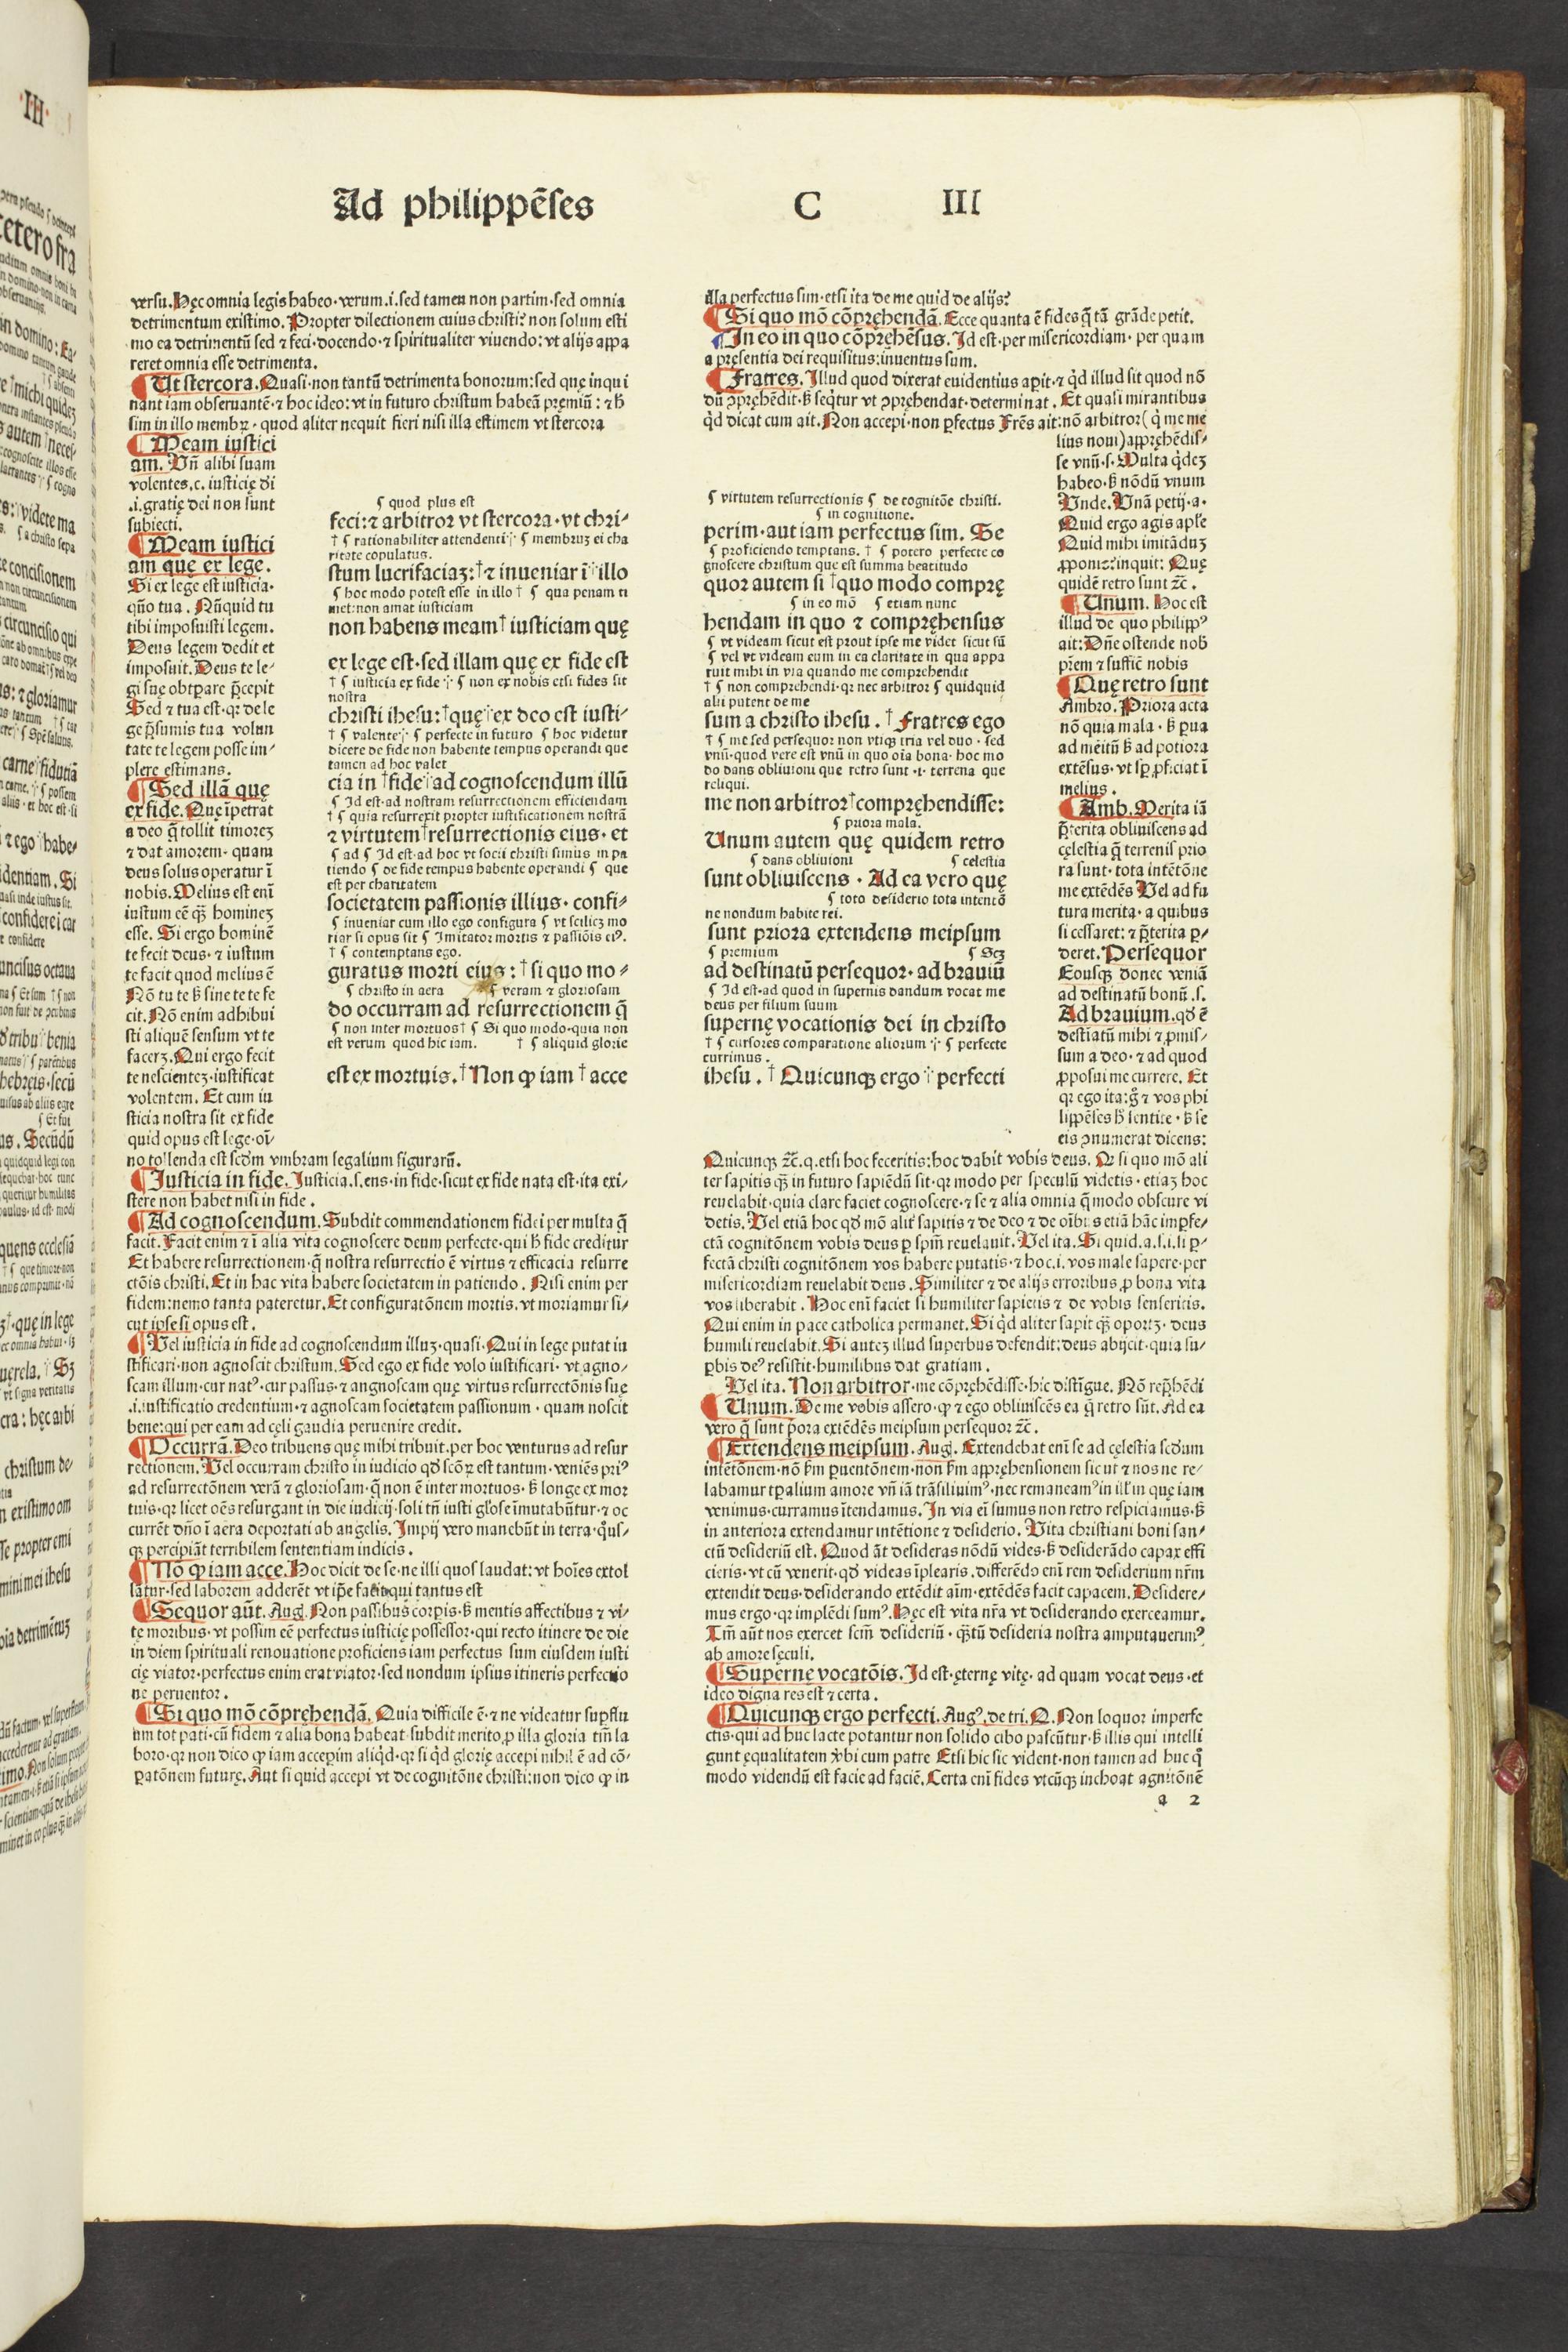 Ad philippēses C III
versu. Hęc omnia legis habeo· verum .i. sed tamen non partim· sed omnia
detrimentum existimo. Propter dilectionem cuius christi? non solum esti
mo ea detrimentū sed ⁊ feci· docendo· ⁊ spiritualiter viuendo: vt alijs appa
reret omnia esse detrimenta.
Ut stercora. Quasi· non tantū detrimenta bonorum: sed quę inqui
nant iam obseruantē· ⁊ hoc ideo: vt in futuro christum habeā pręmiū: ⁊ h̄
sim in illo membꝝ· quod aliter nequit fieri nisi illa estimem vt stercora
Meam iustici
am. Vn̄ alibi suam
volentes .c. iusticię di
.i. gratię dei non sunt
subiecti.
Meam iustici
am quę ex lege.
Si ex lege est iusticia·
quō tua. Nūquid tu
tibi imposuisti legem.
Deus legem dedit et
imposuit. Deus te le-
gi suę obtꝑare p̄cepit
Sed ⁊ tua est· qꝛ de le
ge p̄sumis tua volun
tate te legem posse im-
plere estimans.
Sed illā quę
ex fide. Quę īpetrat
a deo q̄ tollit timoreꝫ
⁊ dat amorem· quam
deus solus operatur ī
nobis. Melius est enī
iustum eē qꝫ̄ homineꝫ
esse. Si ergo hominē
te fecit deus· ⁊ iustum
te facit quod melius ē
Nō tu te ß sine te te fe
cit. Nō enim adhibui
sti aliquē sensum vt te
facerꝫ. Qui ergo fecit
te nescienteꝫ· iustificat
volentem. Et cum iu
sticia nostra sit ex fide
quid opus est lege· oī-
no tollenda est scd̄m vmbram legalium figurarū.
Iusticia in fide. Iusticia .s. ens· in fide· sicut ex fide nata est· ita exi-
stere non habet nisi in fide.
Ad cognoscendum. Subdit commendationem fidei per multa q̄
facit. Facit enim ⁊ ī alia vita cognoscere deum perfecte· qui h̄ fide creditur
Et habere resurrectionem· q̄ nostra resurrectio ē virtus ⁊ efficacia resurre
ctōis christi. Et in hac vita habere societatem in patiendo. Nisi enim per
fidem: nemo tanta pateretur. Et configuratōnem mortis. vt moriamur si-
cut ipse si opus est.
Vel iusticia in fide ad cognoscendum illuꝫ· quasi· Qui in lege putat iu
stificari· non agnoscit christum. Sed ego ex fide volo iustificari· vt agno-
scam illum· cur natꝰ· cur passus· ⁊ angnoscam quę virtus resurrectōnis suę
.i. iustificatio credentium· ⁊ agnoscam societatem passionum· quam noscit
bene: qui per eam ad cęli gaudia peruenire credit.
Occurrā. Deo tribuens quę mihi tribuit. per hoc venturus ad resur
rectionem. Vel occurram christo in iudicio qd̄ scōꝝ est tantum· veniēs priꝰ
ad resurrectōnem verā ⁊ gloriosam· q̄ non ē inter mortuos· ß longe ex mor
tuis· qꝛ licet oēs resurgant in die iudicij· soli tn̄ iusti glōse īmutabūtur· ⁊ oc
currēt dn̄o ī aera deportati ab angelis. Impij vero manebūt in terra· q̊us-
qꝫ percipiāt terribilem sententiam iudicis.
Nō ꝙ iam acce. Hoc dicit de se· ne illi quos laudat: vt hoīes extol
latur· sed laborem adderēt vt ip̄e qui tantus est
Sequor aūt. Aug. Non passibus corꝑis· ß mentis affectibus ⁊ vi-
tę moribus· vt possim eē perfectus iusticię possessor· qui recto itinere de die
in diem spirituali renouatione proficiens iam perfectus sum eiusdem iusti
cię viator· perfectus enim erat viator· sed nondum ipsius itineris perfectio
ne peruentor.
Si quo mō cōpręhendā. Quia difficile ē· ⁊ ne videatur suꝑflu
um tot pati· cū fidem ⁊ alia bona habeat· subdit merito ꝓ illa gloria tm̄ la
boro· qꝛ non dico ꝙ iam acceꝑim aliq̇d· qꝛ si q̇d glorię accepi nihil ē ad cō-
ꝑatōnem futurę. Aut si quid accepi vt de cognitōne christi: non dico ꝙ in
¶ quod plus est
feci: ⁊ arbitror vt stercora· vt chri-
† ¶ rationabiliter attendenti ¶ membruꝫ ei cha
ritate copulatus.
stum lucrifaciaꝫ: † ⁊ inueniar ī illo
¶ hoc modo potest esse in illo † ¶ qua penam ti
met: non amat iusticiam
non habens meam † iusticiam quę
ex lege est· sed illam quę ex fide est
† ¶ iusticia ex fide ¶ non ex nobis etsi fides sit
nostra
christi ihesu: † quę ex deo est iusti-
† ¶ valente ¶ perfecte in futuro ¶ hoc videtur
dicere de fide non habente tempus operandi que
tamen ad hoc valet
cia in † fide ad cognoscendum illū
¶ Id est· ad nostram resurrectionem efficiendam
† ¶ quia resurrexit propter iustificationem nostrā
⁊ virtutem † resurrectionis eius· et
¶ ad ¶ Id est· ad hoc vt socii christi simus in pa
tiendo ¶ de fide tempus habente operandi ¶ que
est per charitatem
societatem passionis illius· confi-
¶ inueniar cum illo ego configura ¶ vt scilicꝫ mo
riar si opus sit ¶ Imitator mortis ⁊ passiōis eiꝰ.
† ¶ contemptans ego.
guratus morti eius: † si quo mo-
¶ christo in aera ¶ veram ⁊ gloriosam
do occurram ad resurrectionem q̄
¶ non inter mortuos † ¶ Si quo modo· quia non
est verum quod hic iam. † ¶ aliquid glorie
est ex mortuis. † Non ꝙ iam † acce
illa perfectus sim· etsi ita de me quid de alijs?
Si quo mō cōpręhendā. Ecce quanta ē fides q̄ tā grāde petit.
In eo in quo cōpręhēsus. Id est· per misericordiam· per quam
a presentia dei requisitus: inuentus sum.
Fratres. Illud quod dixerat euidentius aꝑit· ⁊ q̇d illud sit quod nō
dū ꝯpręhēdit· ß seq̇tur vt ꝯpręhendat· determinat. Et quasi mirantibus
q̇d dicat cum ait. Non accepi· non ꝑfectus Frēs ait: nō arbitror (q̇ me me
lius noui) appręhēdis-
se vnū .s. Multa q̇deꝫ
habeo· ß nōdū vnum
Unde. Vnā petij· a·
Quid ergo agis apl̄e
Quid mihi imitāduꝫ
ꝓponis? inquit: Quę
quidē retro sunt ⁊c̄.
Unum. Hoc est
illud de quo philippꝰ
ait: Dn̄e ostende nob̄
pr̄em ⁊ suffic̄ nobis
Quę retro sunt
Ambro. Priora acta
nō quia mala· ß ꝑua
ad meitū ß ad potiora
extēsus· vt sꝑ ꝓficiat ī
melius.
Amb. Merita iā
p̄terita obliuiscens ad
cęlestia q̄ terrenis prio
ra sunt· tota intētōne
me extēdēs Vel ad fu
tura merita· a quibus
si cessaret: ⁊ p̄terita ꝑ-
deret. Persequor
Eousqꝫ donec veniā
ad destinatū bonū .s.
Ad brauium. qd̄ ē
destiatū mihi ⁊ ꝓmis-
sum a deo· ⁊ ad quod
ꝓposui me currere. Et
qꝛ ego ita: g̊ ⁊ vos phi
lippēses h̄ sentite· ß se
eis ꝯnumerat dicens:
Quicunqꝫ ⁊c̄. q. etsi hoc feceritis: hoc dabit vobis deus. Qꝛ si quo mō ali
ter sapitis qꝫ̄ in futuro sapiēdū sit· qꝛ modo per speculū videtis· etiaꝫ hoc
reuelabit· quia clare faciet cognoscere· ⁊ se ⁊ alia omnia q̄ modo obscure vi
detis. Vel etiā hoc qd̄ mō alit̄ sapitis ⁊ de deo ⁊ de oībus etiā hāc imꝑfe-
ctā cognitōnem vobis deus ꝑ spm̄ reuelauit. Vel ita. Si quid .a. s. i. si ꝑ-
fectā christi cognitōnem vos habere putatis· ⁊ hoc .i. vos male sapere· per
misericordiam reuelabit deus. Similiter ⁊ de alijs erroribus ꝓ bona vita
vos liberabit. Hoc enī faciet si humiliter sapietis ⁊ de vobis senseritis.
Qui enim in pace catholica permanet. Si q̇d aliter sapit qꝫ̄ oportꝫ· deus
humili reuelabit. Si auteꝫ illud superbus defendit: deus abijcit· quia su-
ꝑbis deꝰ resistit· humilibus dat gratiam.
Vel ita. Non arbitror· me cōpręhēdisse· hic distīgue. Nō rep̄hēdi
Unum. De me vobis assero· ꝙ ⁊ ego obliuiscēs ea q̄ retro sūt. Ad ea
vero q̄ sunt p̄ora extēdēs meipsum persequor ⁊c̄.
Extendens meipsum. Aug. Extendebat enī se ad cęlestia scd̄um
intētōnem· nō ẜm ꝑuentōnem· non ẜm appręhensionem sicut ⁊ nos ne re-
labamur tꝑalium amore vn̄ iā trāsiliuimꝰ· nec remaneamꝰ in ill̄ in quę iam
venimus· curramus ītendamus. In via eī sumus non retro respiciamus· ß
in anteriora extendamur intētione ⁊ desiderio. Vita christiani boni san-
ctū desideriū est. Quod āt desideras nōdū vides· ß desiderādo capax effi
cieris· vt cū venerit· qd̄ videas īplearis· differēdo enī rem desiderium nr̄m
extendit deus· desiderando extēdit aīm· extēdēs facit capacem. Desidere-
mus ergo· qꝛ implēdi sumꝰ. Hęc est vita nr̄a vt desiderando exerceamur.
Tm̄ aūt nos exercet scm̄ desideriū· qꝫ̄tū desideria nostra amputauerimꝰ
ab amore sęculi.
Supernę vocatōis. Id est· ęternę vitę· ad quam vocat deus· et
ideo digna res est ⁊ certa.
Quicunqꝫ ergo perfecti. Augꝰ. de tri. Q. Non loquor imperfe
ctis· qui ad huc lacte potantur non solido cibo pascūtur· ß illis qui intelli
gunt ęqualitatem v̄bi cum patre Etsi hic sic vident· non tamen ad huc q̄
modo videndū est facie ad faciē. Certa enī fides vtcūqꝫ inchoat agnitōnē
¶ virtutem resurrectionis ¶ de cognitōe christi.
¶ in cognitione.
perim· aut iam perfectus sim. Se
¶ proficiendo temptans. † ¶ potero perfecte co
gnoscere christum que est summa beatitudo
quor autem si † quo modo comprę
¶ in eo mō ¶ etiam nunc
hendam in quo ⁊ compręhensus
¶ vt videam sicut est prout ipse me videt sicut sū
¶ vel vt videam eum in ea claritate in qua appa
ruit mihi in via quando me comprehendit
† ¶ non comprehendi· qꝛ nec arbitror ¶ quidquid
alii putent de me
sum a christo ihesu. † Fratres ego
† ¶ me sed persequor non vtiqꝫ tria vel duo· sed
vnū· quod vere est vnū in quo oīa bona· hoc mo
do dans obliuioni que retro sunt ·i· terrena que
reliqui.
me non arbitror † compręhendisse:
¶ priora mala.
Unum autem quę quidem retro
¶ dans obliuioni ¶ celestia
sunt obliuiscens· Ad ea vero quę
¶ toto desiderio tota intentō
ne nondum habite rei.
sunt priora extendens meipsum
¶ premium ¶ Scꝫ
ad destinatū persequor· ad brauiū
¶ Id est· ad quod in supernis dandum vocat me
deus per filium suum
supernę vocationis dei in christo
† ¶ cursores comparatione aliorum ¶ perfecte
currimus.
ihesu. † Quicunqꝫ ergo perfecti
a 2